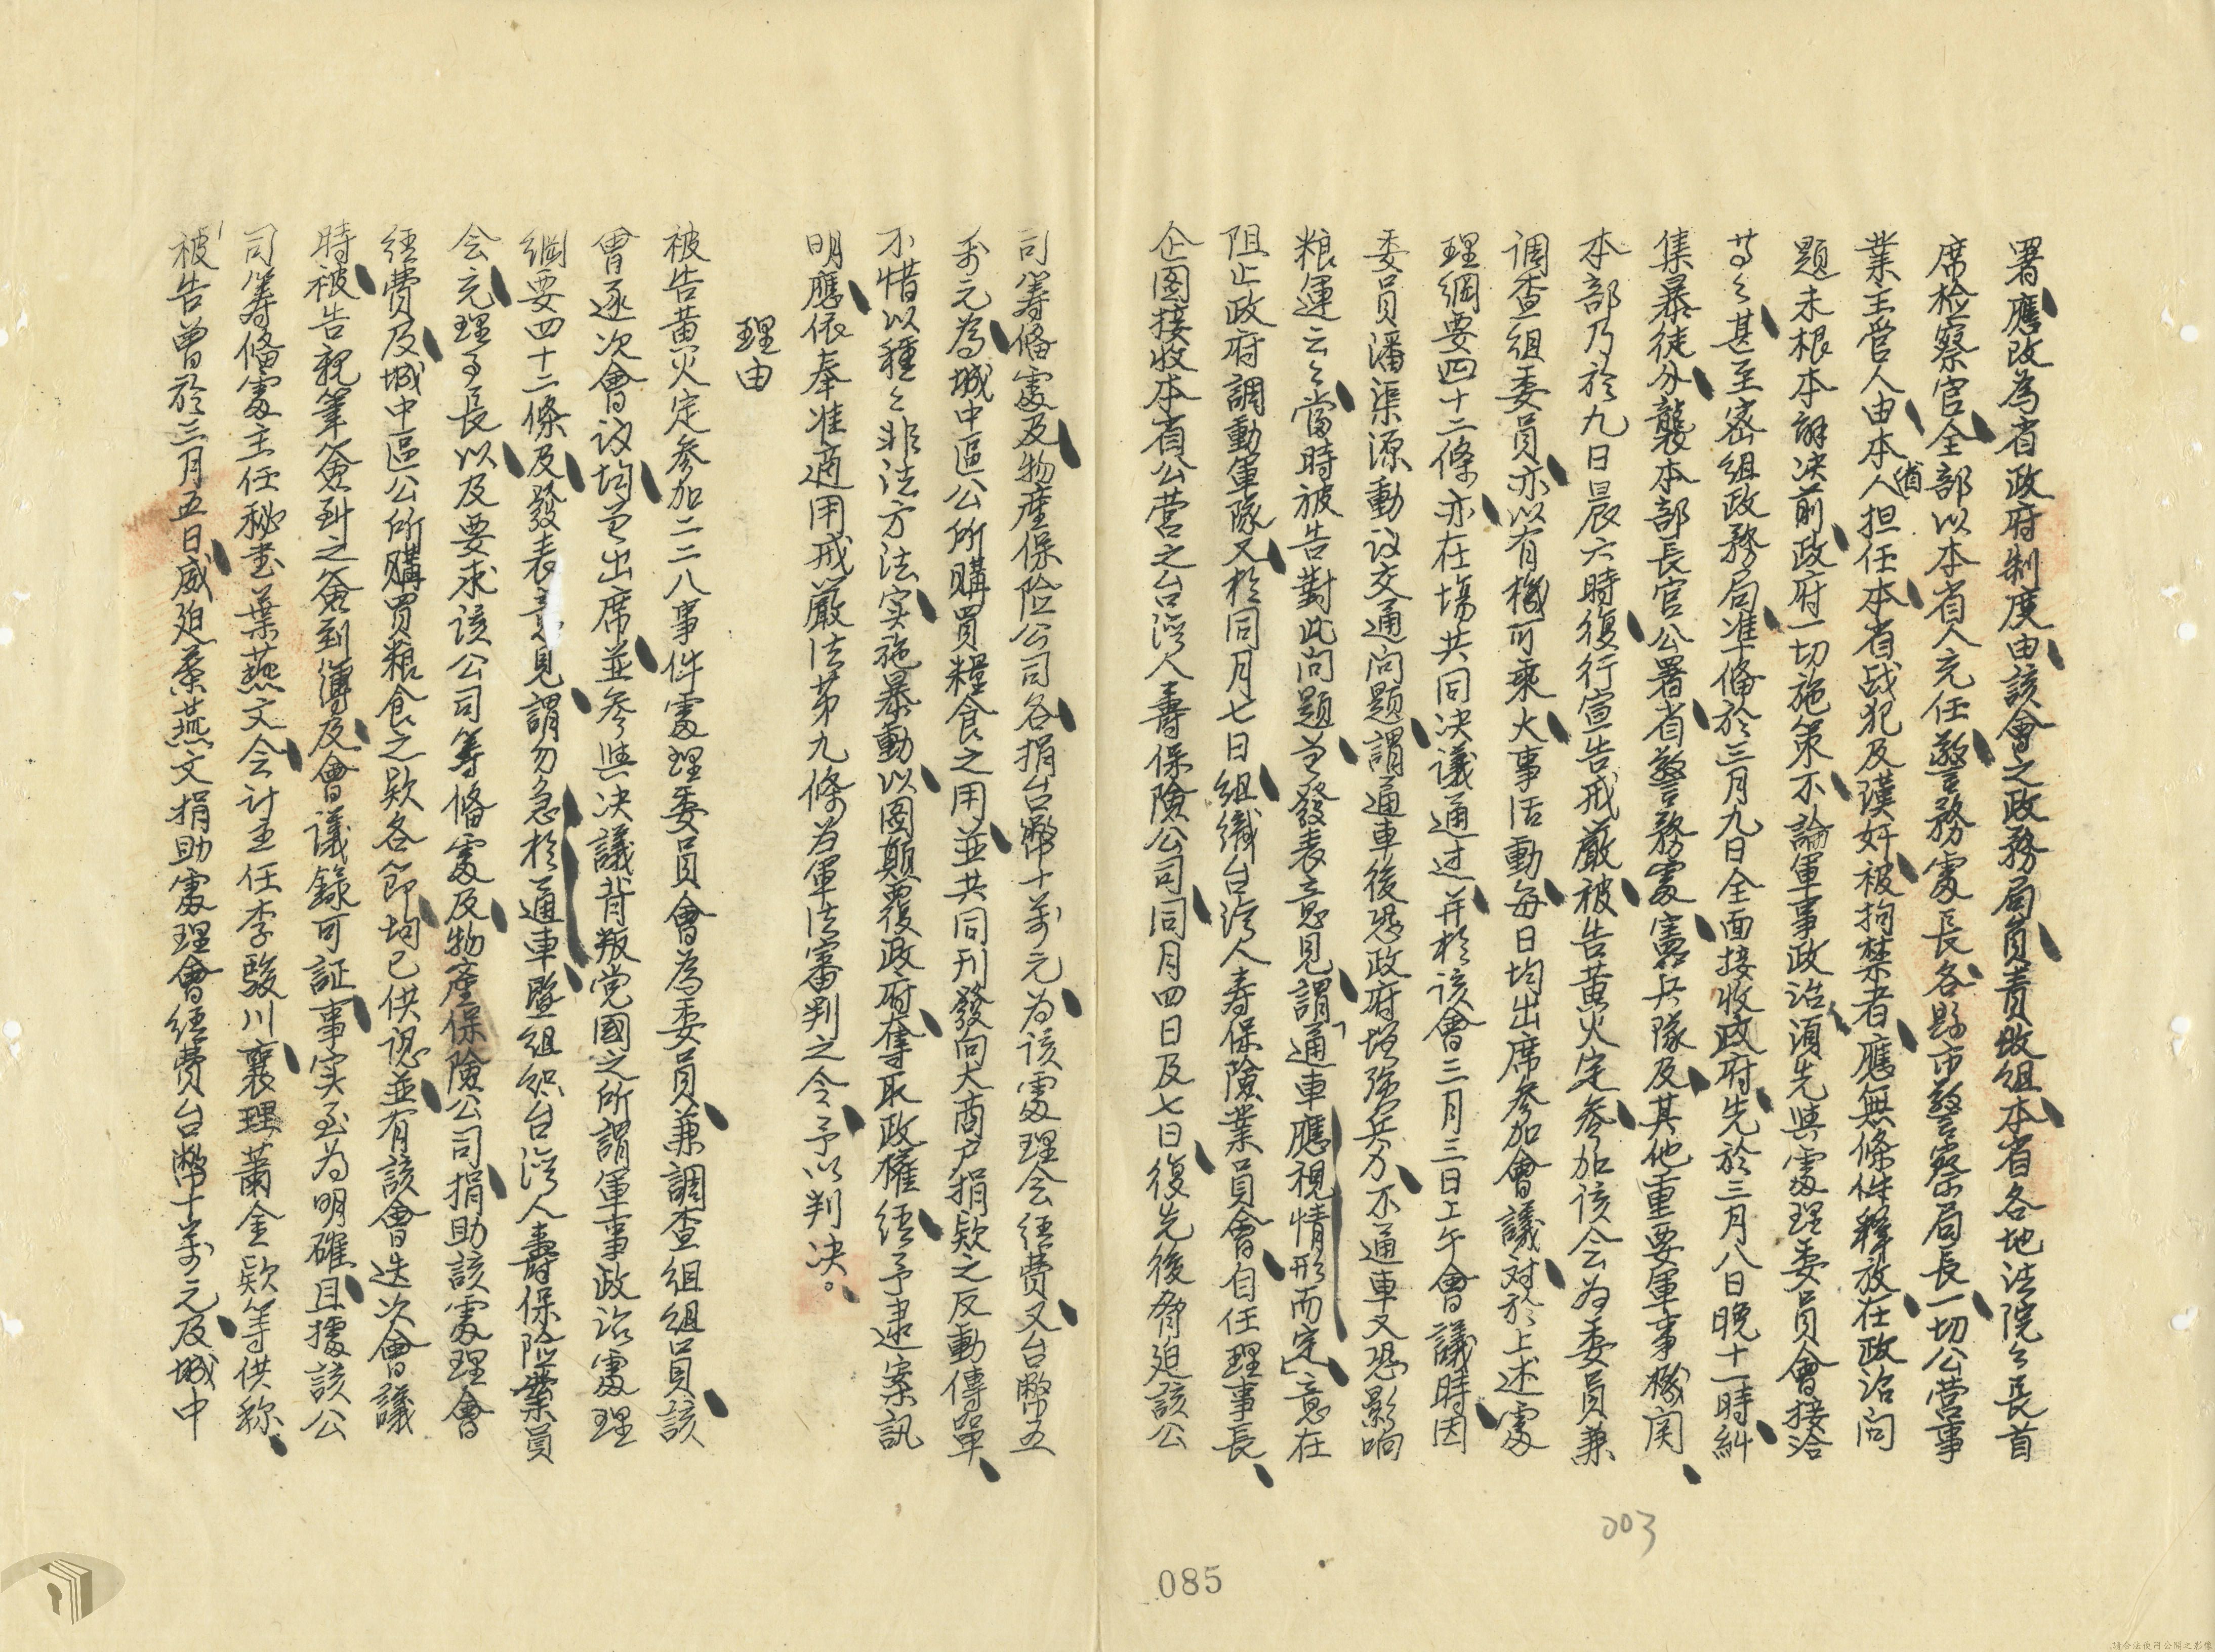 署、應改為省政府制度、由該會之政務局負責改組、本省各地法院之長首
席檢察官、全部以本省人充任、警務處長、各縣市警察局長、一切公营事
業主管人、由本省人担任、本省战犯及漢奸被拘禁者、應無條件釋放、在政治问
題未根本解决前、政府一切施策、不論軍事政治、須先與處理委員會接洽
等之、甚至密組政務局、准備於三月九日全面接收政府、先於三月八日晚十一時、糾
集暴徒、分襲本部長官公署、省警務處、憲兵隊、及其他重要軍事機関、
本部乃於九日晨六時、復行宣告戒嚴、被告黄火定、参加该会为委員兼
调查组委員、亦以有機可乘、大事活動、每日均出席参加會議、对於上述處
理綱要四十二條、亦在場共同决議通过、并於该會三月三日上午會議時、因
委員潘渠源動议交通问題、謂通車後恐政府增强兵力、不通車又恐影响
粮運云々、當時被告對此问題、曾發表意見、謂「通車應視情形而定」、意在
阻止政府調動軍隊、又於同月七日、組織台湾人寿保險業員會、自任理事長、
企图接收本省公营之台湾人壽保險公司、同月四日及七日、復先後脅迫該公
司籌備處、及物產保险公司、各捐台幣十萬元、为该處理会经費、又台幣五
萬元、為城中區公所購買糧食之用、並共同刊發向大商户捐欵之反動傳單、
不惜以種々非法方法、实施暴動、以图顛覆政府、奪取政權、经予逮案訊
明、應依奉准適用戒嚴法第九條为軍法審判之令、予以判决。
理由
被告黄火定参加二二八事件處理委員會為委員、兼調查組組員、該
會逐次會议、均曾出席、並参與决議背叛党國之所謂軍事政治處理
綱要四十二條、及發表意見、謂勿急於通車、暨組织台湾人壽保险業員
会、充理事長、以及要求该公司籌備處、及物產保險公司、捐助該處理會
经費、及城中區公所購買粮食之欵各節、均已供認、並有該會迭次會議
時、被告親筆簽到之簽到簿、及會議錄可証、事实至为明確、且據該公
司籌備處主任秘書葉燕文、会计主任李駿川、襄理蕭金欵等供称、
被告曾於三月五日、威廹葉燕文捐助處理會经費台幣十萬元、及城中
003
085
請合法使用公開之影像